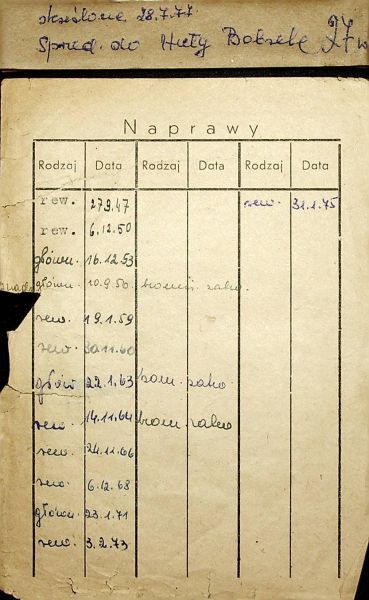 skreślono 28.7.77.
Sprzed. do Huty Bobrek 27 w
Naprawy
Rodzaj Data Rodzaj Data Rodzaj Data
rew. 27.9.47 rew. 31.1.75
rew. 6.12.50
główn. 16.12.53
główn. 10.9.56
rew. 19.1.59
rew. 30.11.60
główn 22.1.63
rew. 14.11.64
rew. 24.11.66
rew. 6.12.68
główn. 23.1.71
rew. 3.2.73